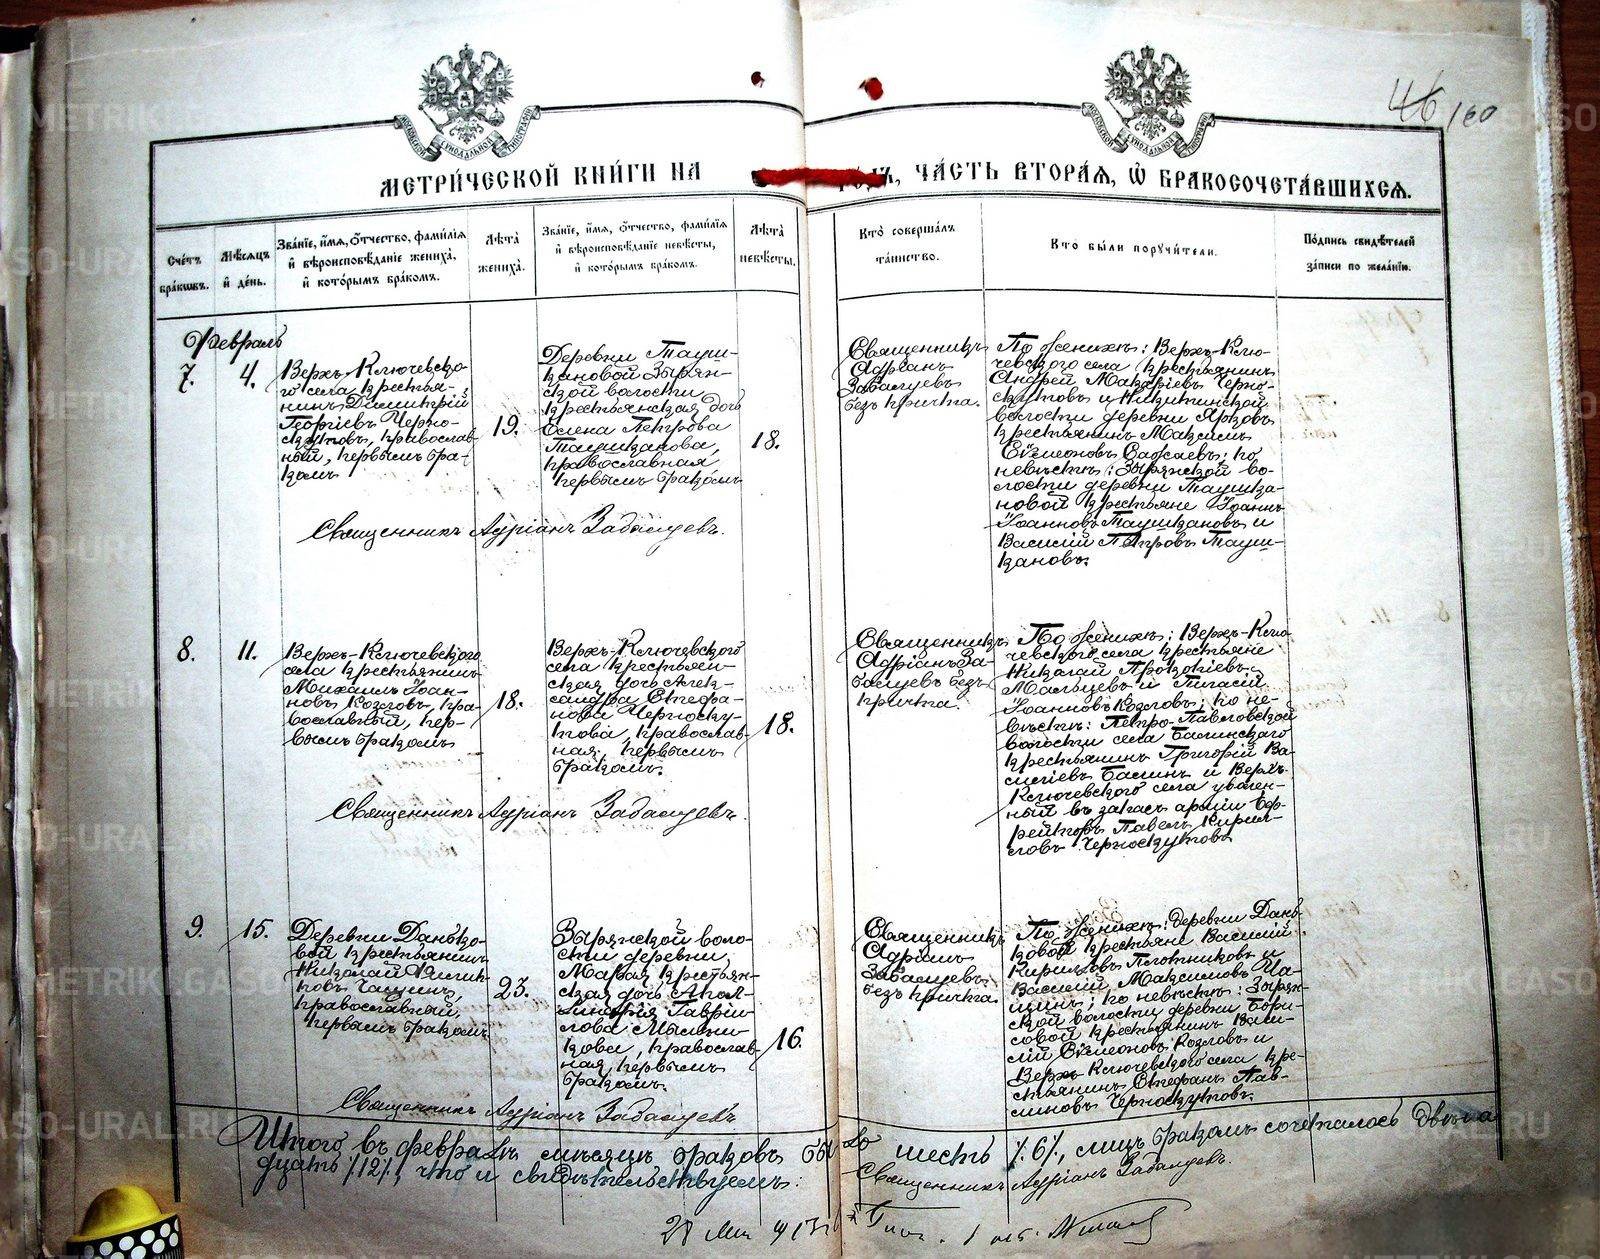 46 160
МЕТРИ́ЧЕСКОЙ КНИ́ГИ НА ГОДЪ, ЧА́СТЬ ВТОРА́Я, Ѡ БРАКОСОЧЕТА́ВШИХСЯ.
Сче́тъ бра́кѡвъ.
Мѣ́сяцъ и҆ де́нь.
Зва́нїе, и҆́мя, ѻ҆́тчество, фами́лїя
и҆ вѣроисповѣ́данїе жениха̀,
и҆ кото́рымъ бра́комъ.
Лѣ́та жениха̀.
Зва́нїе, и҆́мя, ѻ҆́тчество, фами́лїя
и҆ вѣроисповѣ́данїе невѣ́сты,
и҆ кото́рымъ бра́комъ.
Лѣ́та невѣ́сты.
Кто̀ соверша́лъ
та́инство.
Кто̀ бы́ли порꙋчи́тели.
По́дпись свидѣ́телей
за́писи по жела́нїю.
Февраль
7.
4.
Верхъ-Ключевско-
го села крестья-
нинъ Димитрій
Георгіевъ Черно-
скутовъ, православ-
ный, первымъ бра-
комъ
19.
Деревни Тауш-
кановой Зырян-
ской волости
крестьянская дочь
Елена Петрова
Таушканова,
православная
первымъ бракомъ
18.
Священникъ
Адріанъ
Забалуевъ
безъ причта.
По женихѣ: Верхъ-Клю-
чевского села крестьянинъ
Андрей Макаріевъ Черно-
скутовъ и Никитинской
волости деревни Ярковъ
крестьянинъ Максимъ
по
невѣстѣ: Зырянской во-
лости деревни Таушка-
новой крестьяне Іоаннъ
Іоанновъ Таушкановъ и
Василій Петровъ Тауш-
кановъ.
Священникъ Адріанъ Забалуевъ.
8.
11.
Верхъ-Ключевского
села крестьянинъ
Михаилъ Іоан-
новъ Козловъ, пра-
вославный, пер-
вымъ бракомъ
18.
Верхъ-Ключевского
села крестьян-
ская дочь Алек-
сандра Стефа-
нова Черноску-
това, православ-
ная, первымъ
бракомъ.
18.
Священникъ
Адріанъ За-
балуевъ безъ
причта.
По женихѣ: Верхъ-Клю-
чевского села крестьяне
Николай Прокопіевъ
Мальцевъ и Пигасій
Іоанновъ Козловъ; по не-
вѣстѣ: Петро-Павловской
волости села
крестьянинъ Григорій Ва-
силіевъ и Верхъ-
Ключевского села уволен-
ный въ запасъ арміи Еф-
рейторъ Павелъ Кирил-
ловъ Черноскутовъ
Священникъ Адріанъ Забалуевъ.
9.
15.
Деревни Данько-
вой крестьянинъ
Николай Филип-
повъ Чащинъ,
православный,
первымъ бракомъ
23.
Зырянской воло-
сти деревни
крестьян-
ская дочь Апол-
линарія Гаврі-
лова Мыльни-
кова, православ-
ная, первымъ
бракомъ.
16.
Священникъ
Адріанъ
Забалуевъ
безъ причта.
По женихѣ: Деревни Дань-
ковой крестьяне Василій
Кириловъ Плотниковъ и
Василій Максимовъ Ча-
щинъ; по невѣстѣ: Зырян-
ской волости деревни Бори-
совой крестьянинъ Васи-
лій Сѵмеоновъ Козловъ и
Верхъ-Ключевского села кре-
стьянинъ Стефанъ Пав-
линовъ Черноскутовъ.
Священникъ Адріанъ Забалуевъ
Итого въ февралѣ мѣсяцѣ браковъ было шесть /6/, лицъ бракомъ сочеталось двѣна-
дцать /12/, что и свидѣтельствуемъ:
Священникъ Адріанъ Забалуевъ.